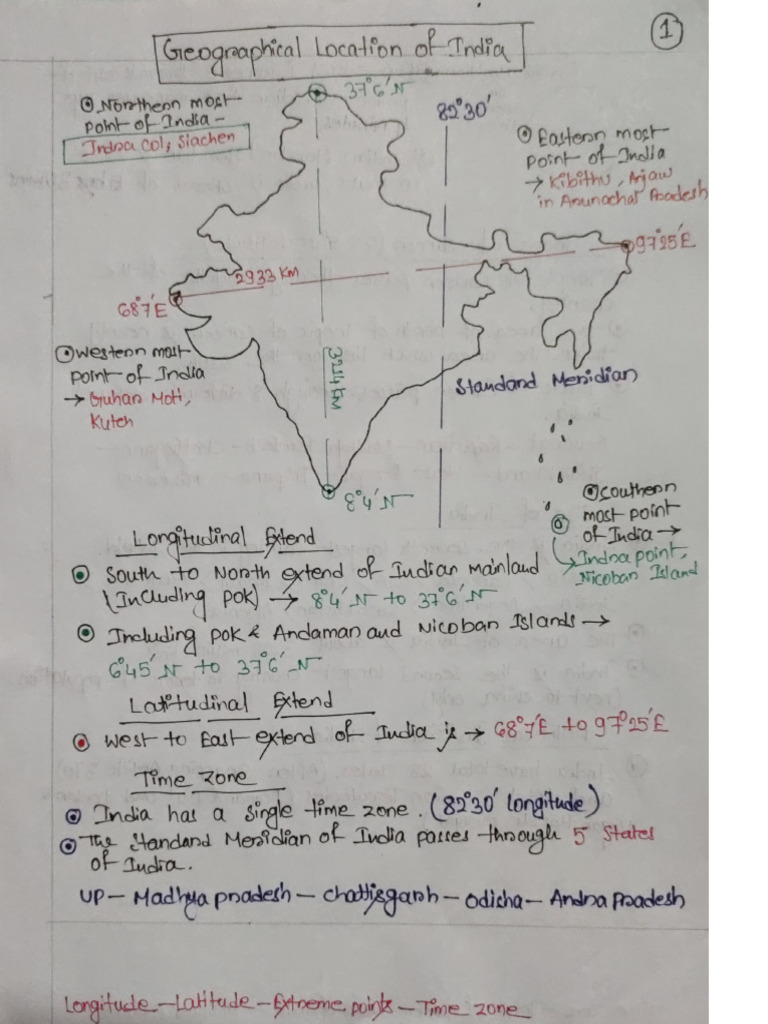 1
Geographical Location of India
37°6'N
82°30'
Northern most
point of India -
Indra Col, Siachen
Eastern most
point of India
→ Kibithu, Anjaw
in Arunachal Pradesh
97°25'E
2933 KM
68°7'E
3214 KM
Western most
point of India
→ Guhar Moti,
Kutch
Standard Meridian
8°4'N
Southern
most point
of India →
Indra point,
Nicobar Island
Longitudinal Extend
South to North extend of Indian mainland
(Including POK) → 8°4'N to 37°6'N
Including POK & Andaman and Nicobar Islands →
6°45'N to 37°6'N
Latitudinal Extend
West to East extend of India is → 68°7'E to 97°25'E
Time Zone
India has a single time zone. (82°30' longitude)
The Standard Meridian of India passes through 5 States
of India.
UP - Madhya pradesh - chattisgarh - Odisha - Andra Pradesh
Longitude - Latitude - Extreme points - Time zone